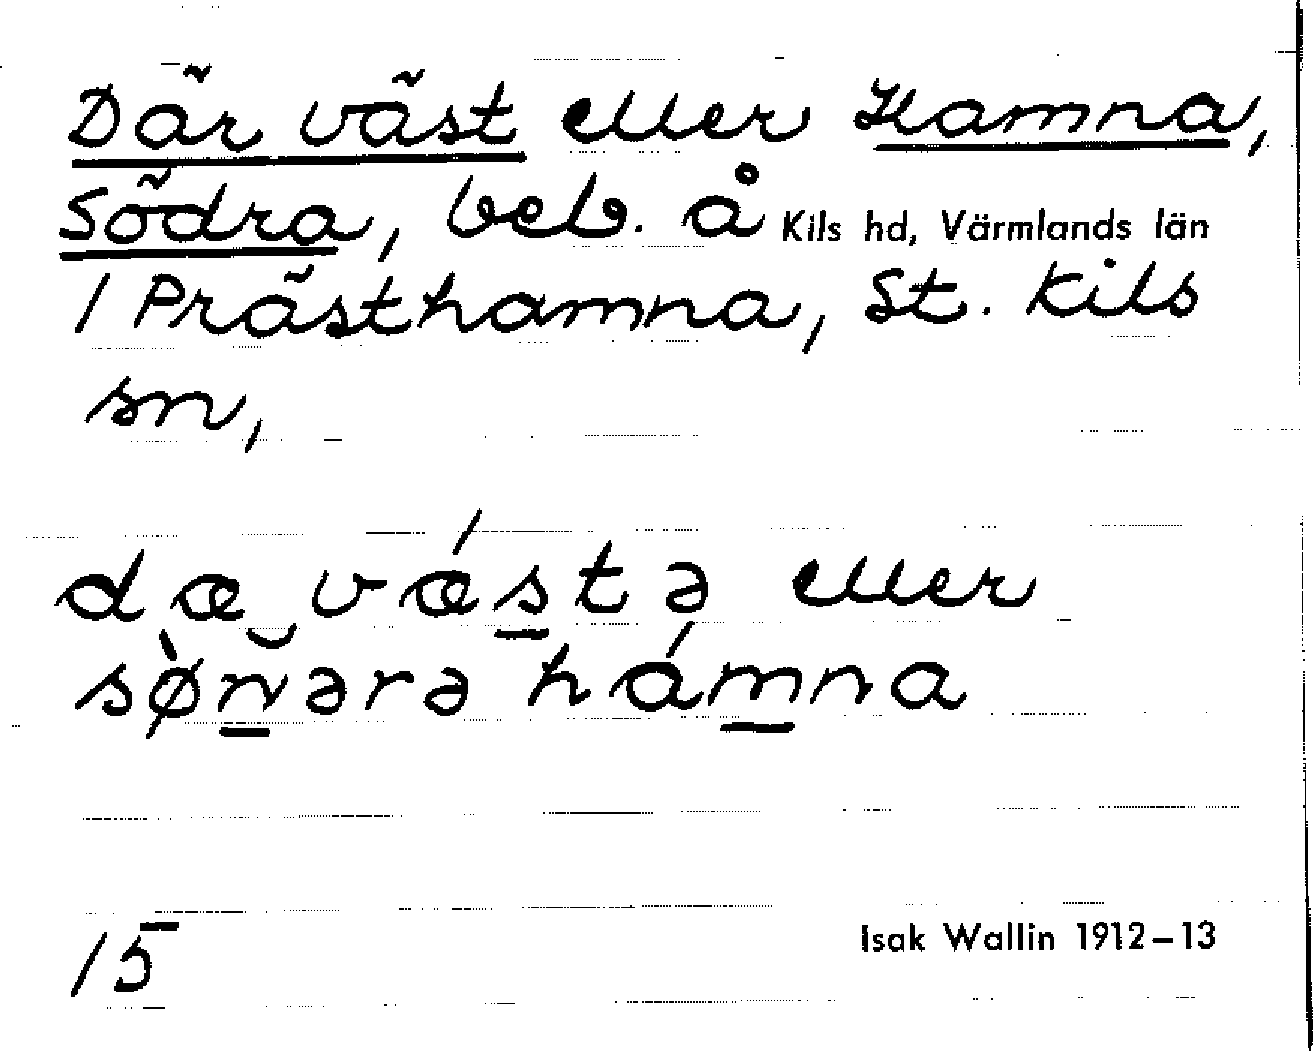 Där väst eller Hamna,
Södra, beb. å Kils hd, Värmlands län
1 Prästhamna, St. Kils
sn,
dæ̮ vǽs̠tə eller
sø̀n̠ərə hám̠na
15 Isak Wallin 1912–13